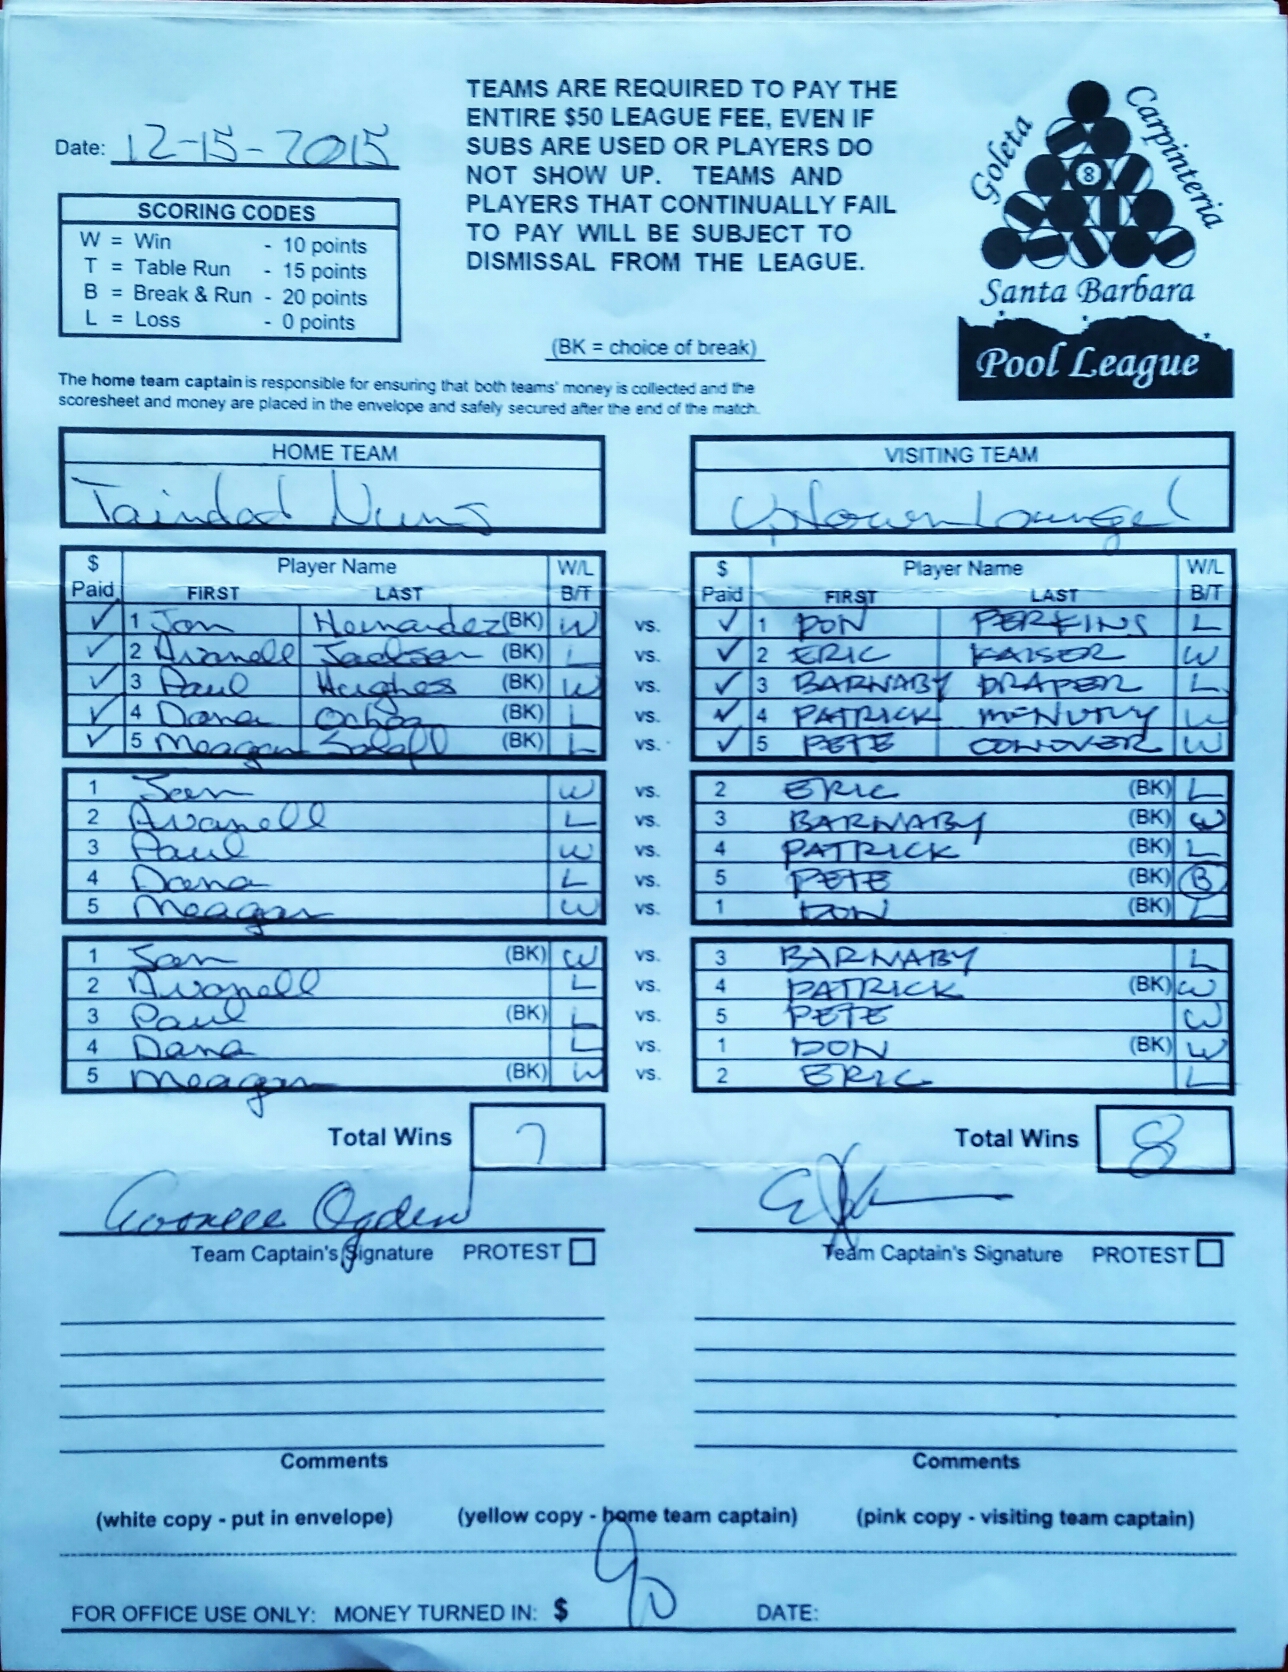 TEAMS ARE REQUIRED TO PAY THE
ENTIRE $50 LEAGUE FEE, EVEN IF
SUBS ARE USED OR PLAYERS DO
NOT SHOW UP. TEAMS AND
PLAYERS THAT CONTINUALLY FAIL
TO PAY WILL BE SUBJECT TO
DISMISSAL FROM THE LEAGUE.
Date: 12-15-2015
Goleta
Carpinteria
8
Santa Barbara
Pool League
SCORING CODES
W = Win - 10 points
T = Table Run - 15 points
B = Break & Run - 20 points
L = Loss - 0 points
(BK = choice of break)
The home team captain is responsible for ensuring that both teams' money is collected and the
scoresheet and money are placed in the envelope and safely secured after the end of the match.
HOME TEAM VISITING TEAM
Uptown Lounge
$ Player Name W/L $ Player Name W/L
Paid FIRST LAST B/T Paid FIRST LAST B/T
✓ 1 Hernandez (BK) W vs. ✓ 1 DON PERKINS L
✓ 2 Avanell Jackson (BK) L vs. ✓ 2 ERIC KAISER W
✓ 3 Paul Hughes (BK) W vs. ✓ 3 BARNABY DRAPER L
✓ 4 Dana Ochoa (BK) L vs. ✓ 4 PATRICK McNULTY W
✓ 5 Meagan (BK) L vs. ✓ 5 PETE CONOVER W
1 W vs. 2 ERIC (BK) L
2 Avanell L vs. 3 BARNABY (BK) W
3 Paul W vs. 4 PATRICK (BK) L
4 Dana L vs. 5 PETE (BK) B
5 Meagan W vs. 1 DON (BK) L
1 (BK) W vs. 3 BARNABY L
2 Avanell L vs. 4 PATRICK (BK) W
3 Paul (BK) L vs. 5 PETE W
4 Dana L vs. 1 DON (BK) W
5 Meagan (BK) W vs. 2 ERIC L
Total Wins 7 Total Wins 8
Ogden
Team Captain's Signature PROTEST Team Captain's Signature PROTEST
Comments Comments
(white copy - put in envelope) (yellow copy - home team captain) (pink copy - visiting team captain)
FOR OFFICE USE ONLY: MONEY TURNED IN: $ 90 DATE: